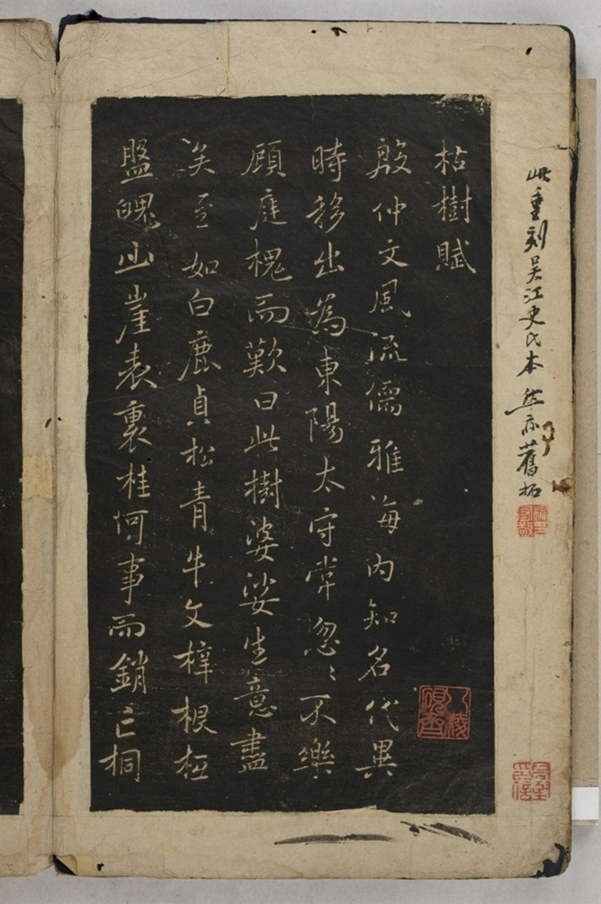 此重刻吳江史氏本然亦舊拓
枯樹賦
殷仲文風流儒雅海内知名代異
時移出為東陽太守常忽〻不樂
顧庭槐而歎曰此樹婆娑生意盡
矣至如白鹿貞松青牛文梓根柢
盤魄山崖表裏桂何事而銷亡桐